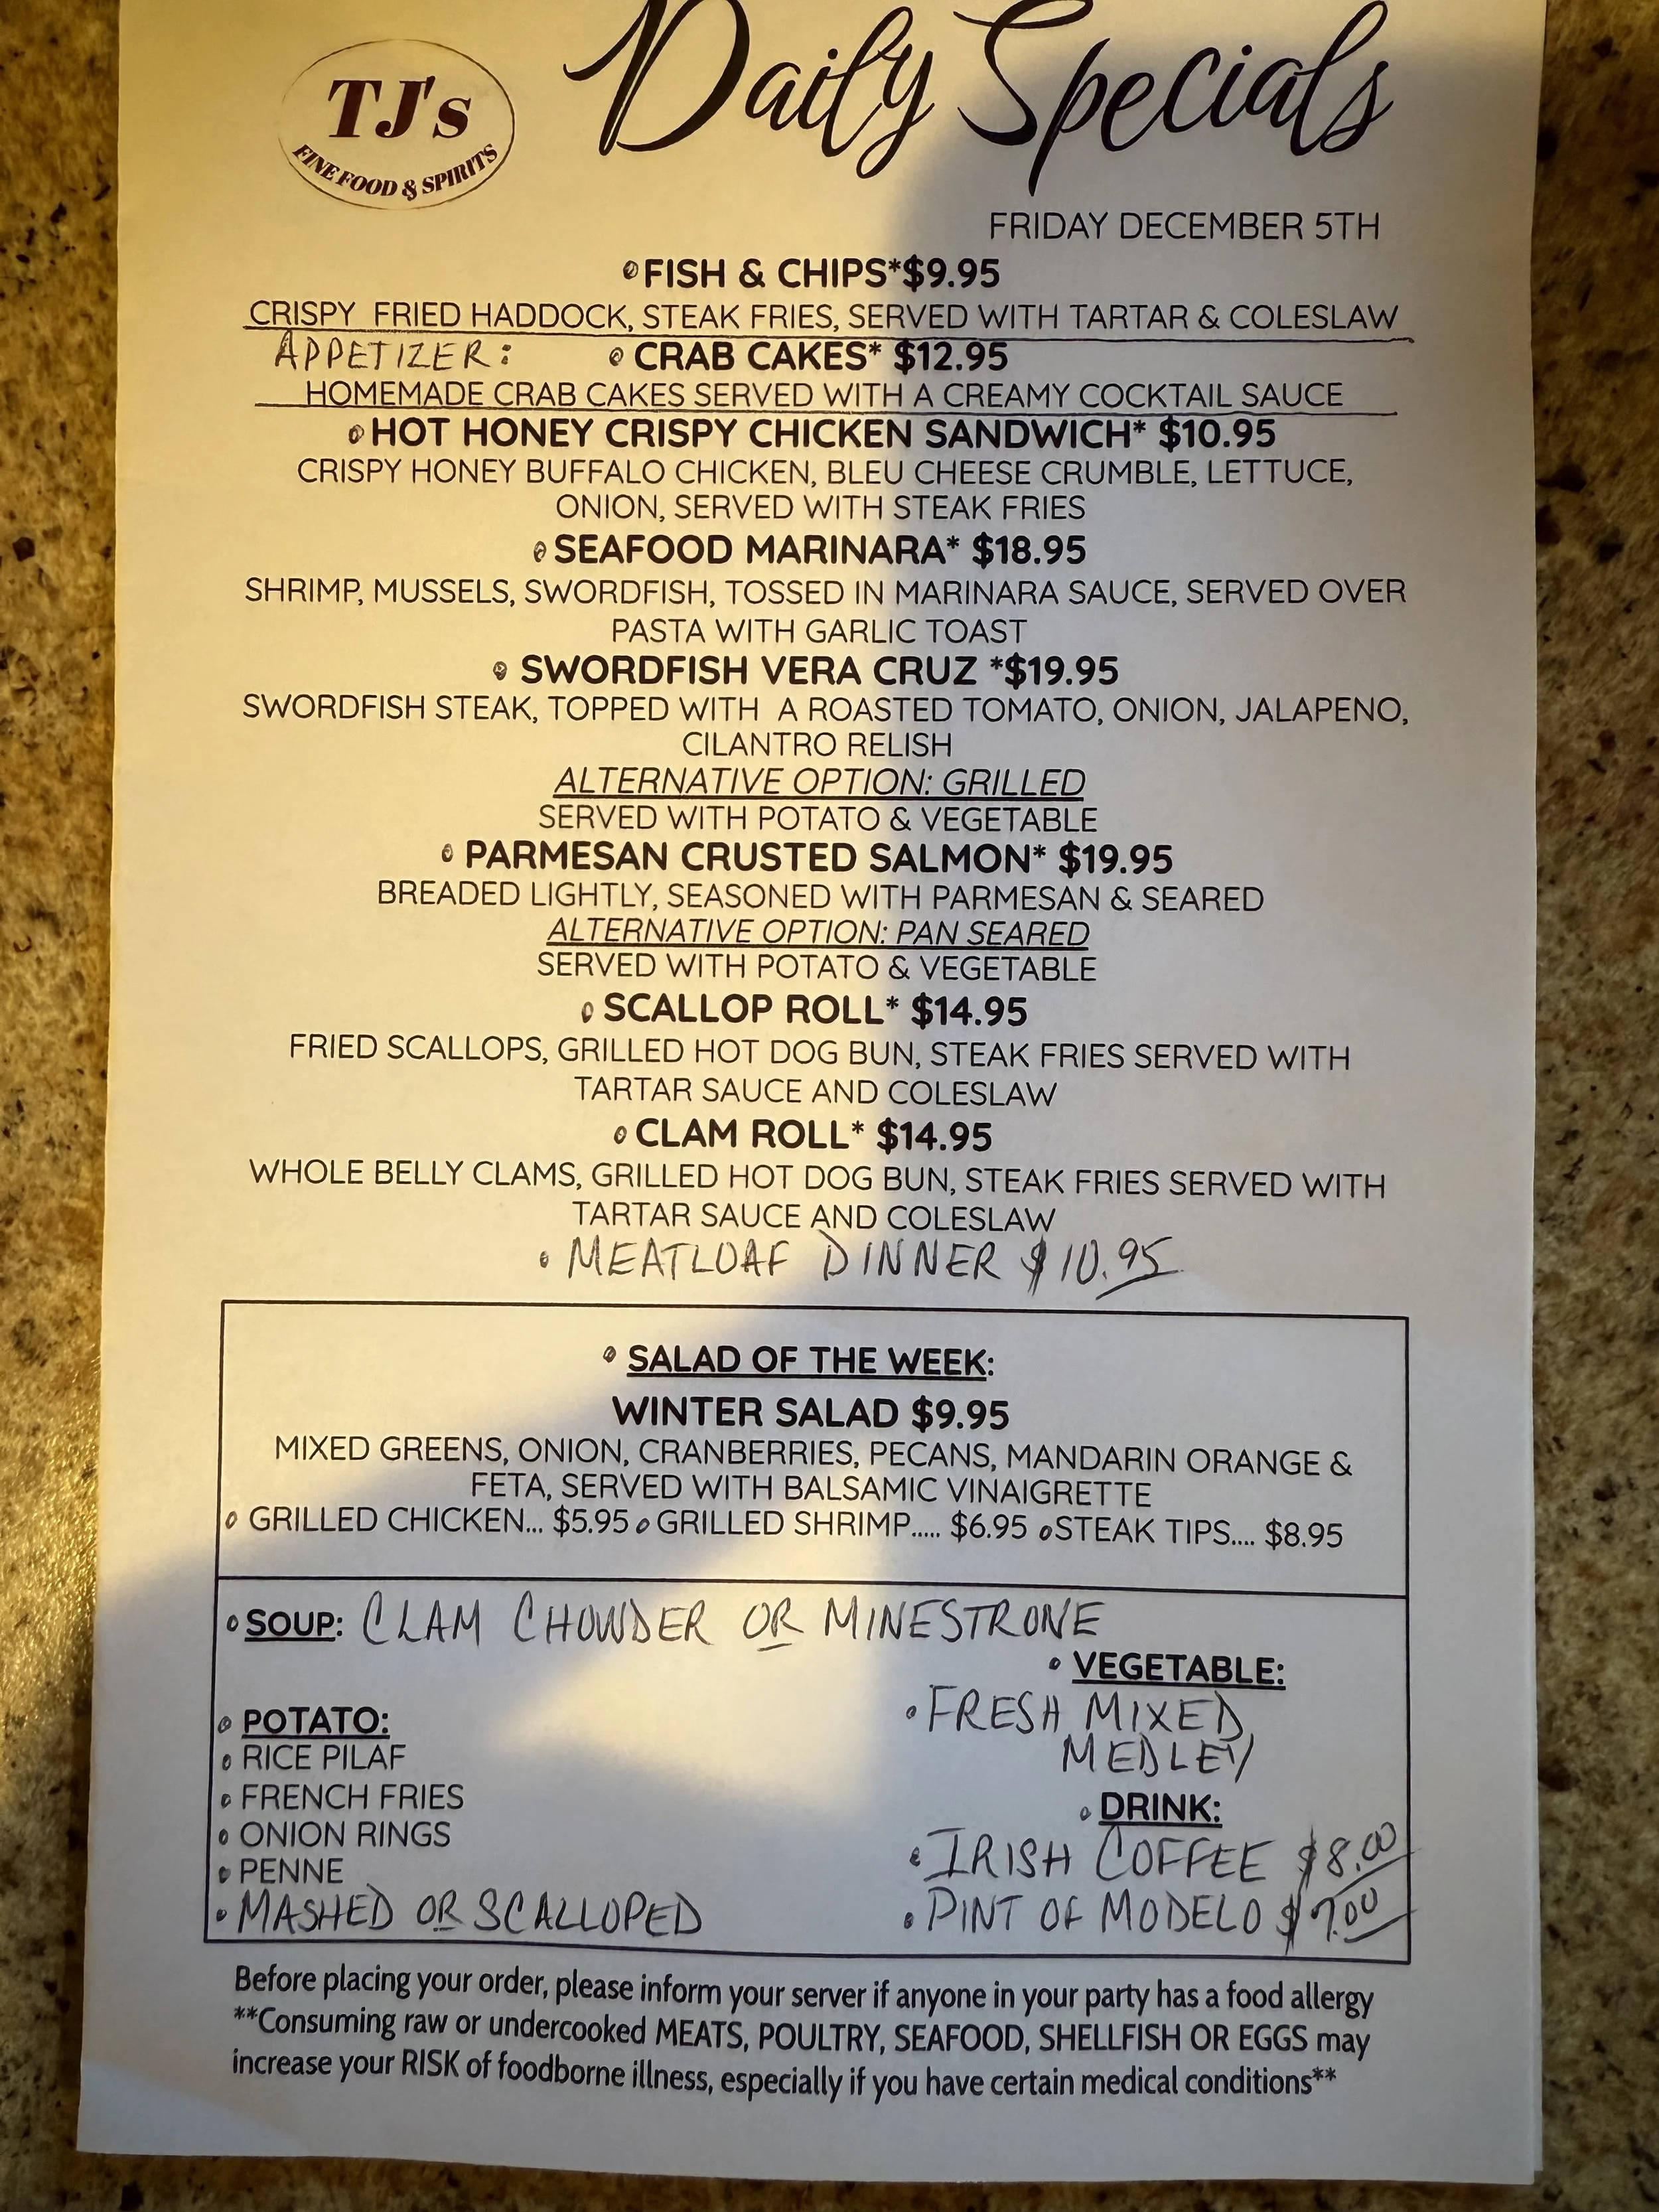 TJ's
FINE FOOD & SPIRITS
Daily Specials
FRIDAY DECEMBER 5TH
FISH & CHIPS*$9.95
CRISPY FRIED HADDOCK, STEAK FRIES, SERVED WITH TARTAR & COLESLAW
APPETIZER: CRAB CAKES* $12.95
HOMEMADE CRAB CAKES SERVED WITH A CREAMY COCKTAIL SAUCE
HOT HONEY CRISPY CHICKEN SANDWICH* $10.95
CRISPY HONEY BUFFALO CHICKEN, BLEU CHEESE CRUMBLE, LETTUCE,
ONION, SERVED WITH STEAK FRIES
SEAFOOD MARINARA* $18.95
SHRIMP, MUSSELS, SWORDFISH, TOSSED IN MARINARA SAUCE, SERVED OVER
PASTA WITH GARLIC TOAST
SWORDFISH VERA CRUZ *$19.95
SWORDFISH STEAK, TOPPED WITH A ROASTED TOMATO, ONION, JALAPENO,
CILANTRO RELISH
ALTERNATIVE OPTION: GRILLED
SERVED WITH POTATO & VEGETABLE
PARMESAN CRUSTED SALMON* $19.95
BREADED LIGHTLY, SEASONED WITH PARMESAN & SEARED
ALTERNATIVE OPTION: PAN SEARED
SERVED WITH POTATO & VEGETABLE
SCALLOP ROLL* $14.95
FRIED SCALLOPS, GRILLED HOT DOG BUN, STEAK FRIES SERVED WITH
TARTAR SAUCE AND COLESLAW
CLAM ROLL* $14.95
WHOLE BELLY CLAMS, GRILLED HOT DOG BUN, STEAK FRIES SERVED WITH
TARTAR SAUCE AND COLESLAW
• MEATLOAF DINNER $10.95
• SALAD OF THE WEEK:
WINTER SALAD $9.95
MIXED GREENS, ONION, CRANBERRIES, PECANS, MANDARIN ORANGE &
FETA, SERVED WITH BALSAMIC VINAIGRETTE
• GRILLED CHICKEN... $5.95 • GRILLED SHRIMP..... $6.95 • STEAK TIPS.... $8.95
• SOUP: CLAM CHOWDER OR MINESTRONE
• POTATO:
• RICE PILAF
• FRENCH FRIES
• ONION RINGS
• PENNE
• MASHED OR SCALLOPED
• VEGETABLE:
• FRESH MIXED
MEDLEY
• DRINK:
• IRISH COFFEE $8.00
• PINT OF MODELO $7.00
Before placing your order, please inform your server if anyone in your party has a food allergy
**Consuming raw or undercooked MEATS, POULTRY, SEAFOOD, SHELLFISH OR EGGS may
increase your RISK of foodborne illness, especially if you have certain medical conditions**